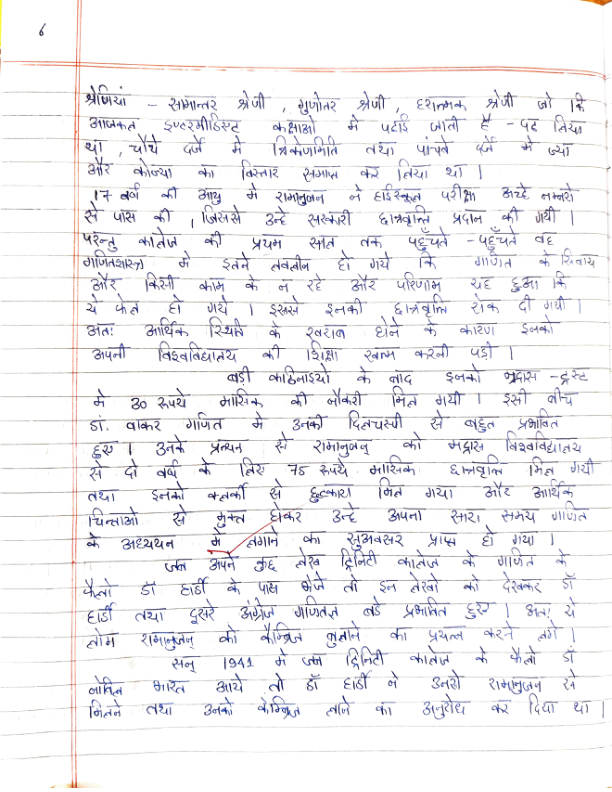 6
श्रेणियां - समान्तर श्रेणी , गुणोतर श्रेणी , हरात्मक श्रेणी जो कि
आजकल इण्टरमीडिस्ट कक्षाओ मे पढाई जाती है - पढ लिया
था , चौथे दर्जे मे त्रिकोणमिति तथा पांचवे दर्जे में ज्या
और कोज्या का विस्तार समाप्त कर लिया था ।
17 वर्ष की आयु मे रामानुजन ने हाईस्कूल परीक्षा अच्छे नम्बरो
से पास की , जिससे उन्हे सरकारी छात्रवृत्ति प्रदान की गयी ।
परन्तु कालेज की प्रथम साल तक पहुँचते - पहुँचते वह
गणितशास्त्र मे इतने तवलीन हो गये कि गणित के सिवाय
और किसी काम के न रहे और परिणाम यह हुआ कि
ये फेल हो गये । इससे इनकी छात्रवृत्ति रोक दी गयी ।
अतः आर्थिक स्थिति के खराब होने के कारण इनको
अपनी विश्वविद्यालय की शिक्षा खत्म करनी पडी ।
बडी कठिनाइयो के बाद इनको मद्रास - ट्रस्ट
मे 30 रूपये मासिक की नौकरी मिल गयी । इसी बीच
डां. वाकर गणित मे उनकी दिलचस्पी से बहुत प्रभावित
हुए । उनके प्रत्यन से रामानुजन् को मद्रास विश्वविद्यालय
से दो वर्ष के लिए 75 रूपये मासिक छात्रवृत्ति मिल गयी
तथा इनको क्लर्की से छुटकारा मिल गया और आर्थिक
चिन्ताओ से मुक्त होकर उन्हे अपना सारा समय गणित
के अध्ययन में लगाने का सुअवसर प्राप्त हो गया ।
जब अपने कुछ लेख ट्रिनिटी कालेज के गणित के
फैलो डॉ हार्डी के पास भेजे तो इन लेखो को देखकर डॉ
हार्डी तथा दूसरे अंग्रेज गणितज्ञ बडे प्रभावित हुए । अतः ये
लोग रामानुजन् को कैम्ब्रिज बुलाने का प्रयत्न करने लगे ।
सन् 1941 मे जब ट्रिनिटी कालेज के फैलो डॉ
नोविल भारत आये तो डॉ हार्डी ने उनसे रामानुजन से
मिलने तथा उनको केम्ब्रिज लाने का अनुरोध कर दिया था ।